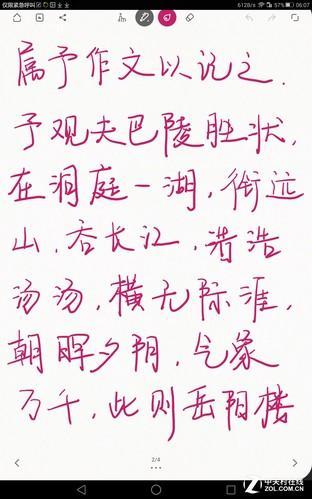 仅限紧急呼叫
57% 06:07
属予作文以记之.
予观夫巴陵胜状,
在洞庭一湖,衔远
山,吞长江,浩浩
汤汤,横无际涯,
朝晖夕阴,气象
万千,此则岳阳楼
2/4
中关村在线
ZOL.COM.CN